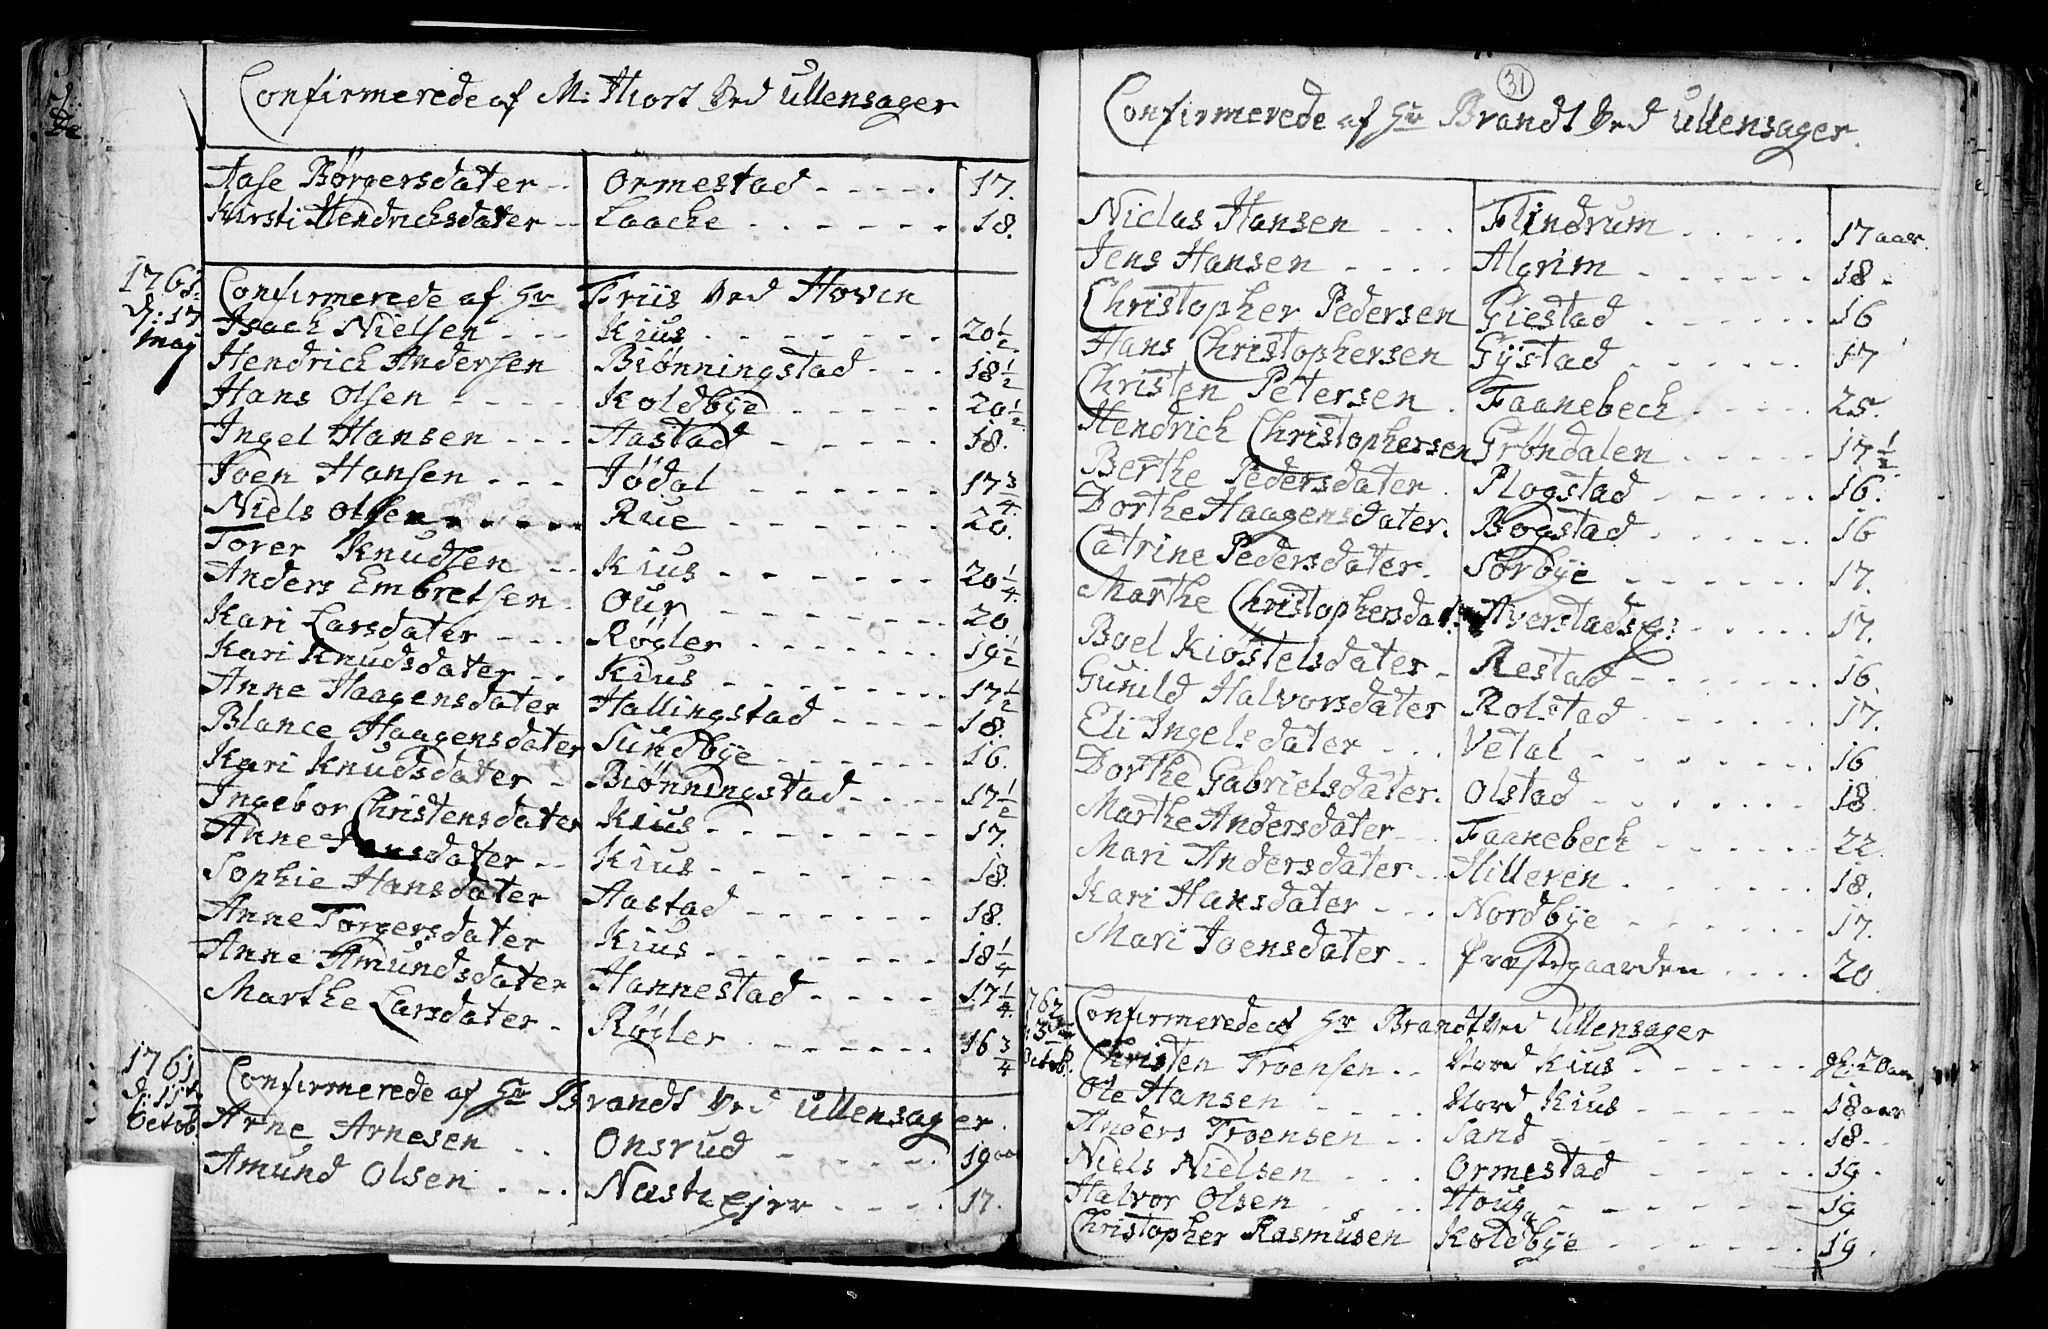 Confirmerede af M: Hiort Ved Ullensager
Aase Børgersdater -- Ormestad - - - - . 17.
Kirsti Hendrichsdater -- Laache - - - - - - 18.
1761.
d: 17
maj
Confirmerede af Hr Friis Ved Hovin
Isach Nielsen - - - Kius - - - - - - - 20 1/2.
Hendrich Andersen Biønningstad - - - 18 1/2
Hans Olsen - - - - Koldbye - - - - - - 20 1/2.
Ingel Hansen - - - Aastad - - - - - - 18.
Joen Hansen - - - Jødal - - - - - - 17 3/4.
Niels Olsen - - - - Rue - - - - - - - 20.
Torer Knudsen - - Kius - - - - - - 20 1/4.
Anders Embretsen. Our - - - - - - - 20.
Kari Larsdater - - - Røgler - - - - - - - 19 1/2
Kari Knudsdater - - Kius - - - - - - - 17 1/2
Anne Haagensdater Hallingstad - - - - 18.
Blance Haagensdater Sundbye - - - - - - 16.
Kari Knudsdater - Biønningstad - - - - 17 1/2
Ingebor Christensdater Kius - - - - - - - 17.
Anne Hansdater - - Kius - - - - - - - 18.
Sophie Hansdater Aastad - - - - - - 18.
Anne Torgersdater Kius - - - - - - - 18 1/4
Anne Amundsdater Hannestad - - - - 17 1/4.
Marthe Larsdater - Røgler - - - - - - 16 3/4
1761.
d: 11te
Octob.
Confirmerede af Hr Brandt Ved Ullensager.
Arne Arnesen - - Onsrud - - - - - - 19 aar
Amund Olsen - - - - - - - 17.
31
Confirmerede af Hr Brandt Ved Ullensager.
Niclas Hansen - - - Flindrum - - - - - 17 aar.
Jens Hansen - - - - Algrim - - - - - - 18 -
Christopher Pedersen Giestad - - - - - - 16
Hans Christophersen Gystad - - - - - - 17
Christen Petersen . Faanebech - - - - - 25.
Hendrich Christophersen Grøndalen - - - - - 17 1/2
Berthe Pedersdater . Plogstad - - - - - - 16.
Dorthe Haagensdater. Bogstad - - - - - - 16
Catrine Pedersdater. Sørbye - - - - - - - 17.
Marthe Christophersdat: Averstads E: - - - - 17.
Boel Kiøstelsdater - Restad - - - - - - - 16.
Gunild Halvorsdater Rolstad - - - - - - 17.
Eli Ingelsdater - - . Vetal - - - - - - - 16
Dorthe Gabrielsdater. Olstad - - - - - - - 18.
Marthe Andersdater - Faanebech - - - - - - 22.
Mari Andersdater - - Hilleren - - - - - - 18.
Kari Hansdater - - - Nordbye - - - - - - 17.
Mari Joensdater - - Præstegaarden - - - - 20.
1762
d: 3die
Octob.
Confirmerede af Hr Brandt Ved Ullensager
Christen Troensen - - Nord Kius - - - - - - 20 aar
Ole Hansen - - - - Nord Kius - - - - - - 18 aar
Anders Troensen - - Sand - - - - - - - 18 - -
Niels Nielsen - - - Ormestad - - - - - - 19 -
Halvor Olsen - - - - Houg - - - - - - - 19
Christopher Rasmusen Koldbye - - - - - - 19.